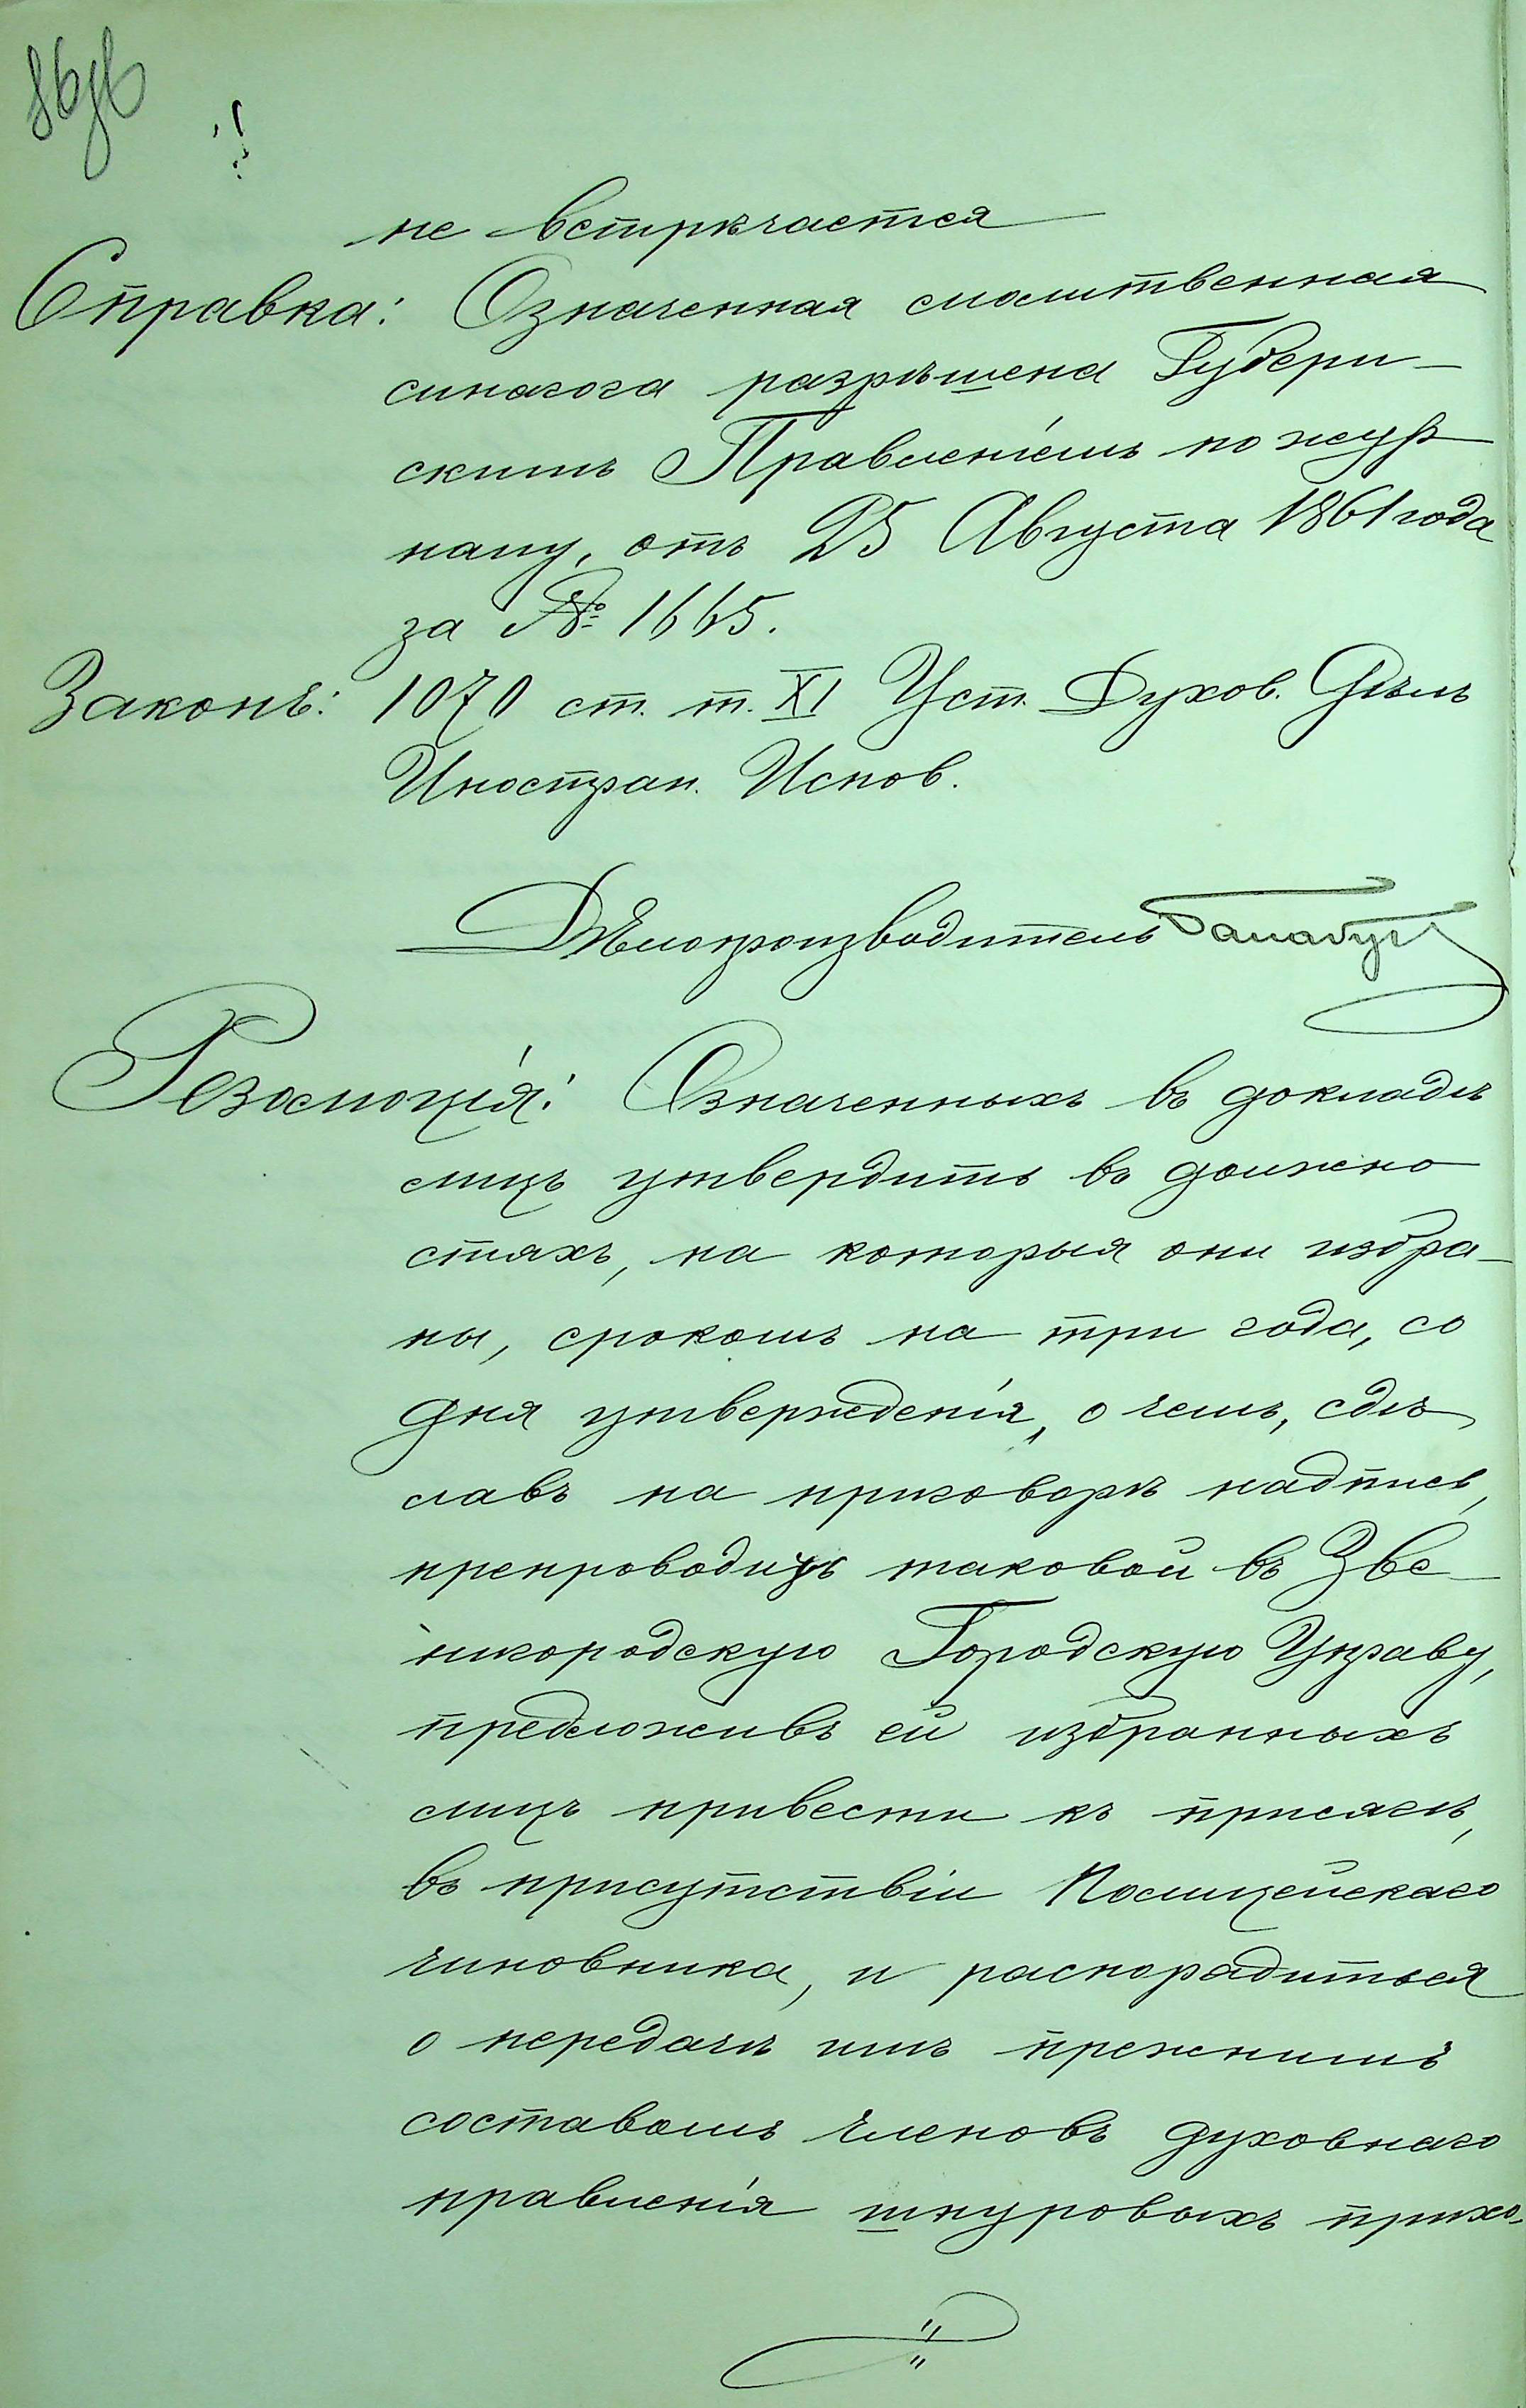 не встрѣчается
Справка: Означенная молитвенная
синагога разрѣшена Губерн-
скимъ Правленіемъ по жур-
налу, отъ 25 Августа 1861 года
за № 1665.
Законъ: 1070 ст. т. XI Уст. Духов. Дѣлъ
Иностран. Испов.
Дѣлопроизводитель
Резолюція: Означенныхъ въ докладѣ
лицъ утвердить въ должно
стяхъ, на которыя они избра-
ны, срокомъ на три года, со
дня утвержденія, о чемъ, сдѣ
лавъ на приговорѣ надпись,
препроводить таковой въ Зве-
нигородскую Городскую Управу,
предложивъ ей избранныхъ
лицъ привести къ присягѣ,
въ присутствіи Полицейскаго
чиновника, и распорядиться
о передачѣ имъ прежнимъ
составомъ членовъ духовнаго
правленія шнуровыхъ прихо-